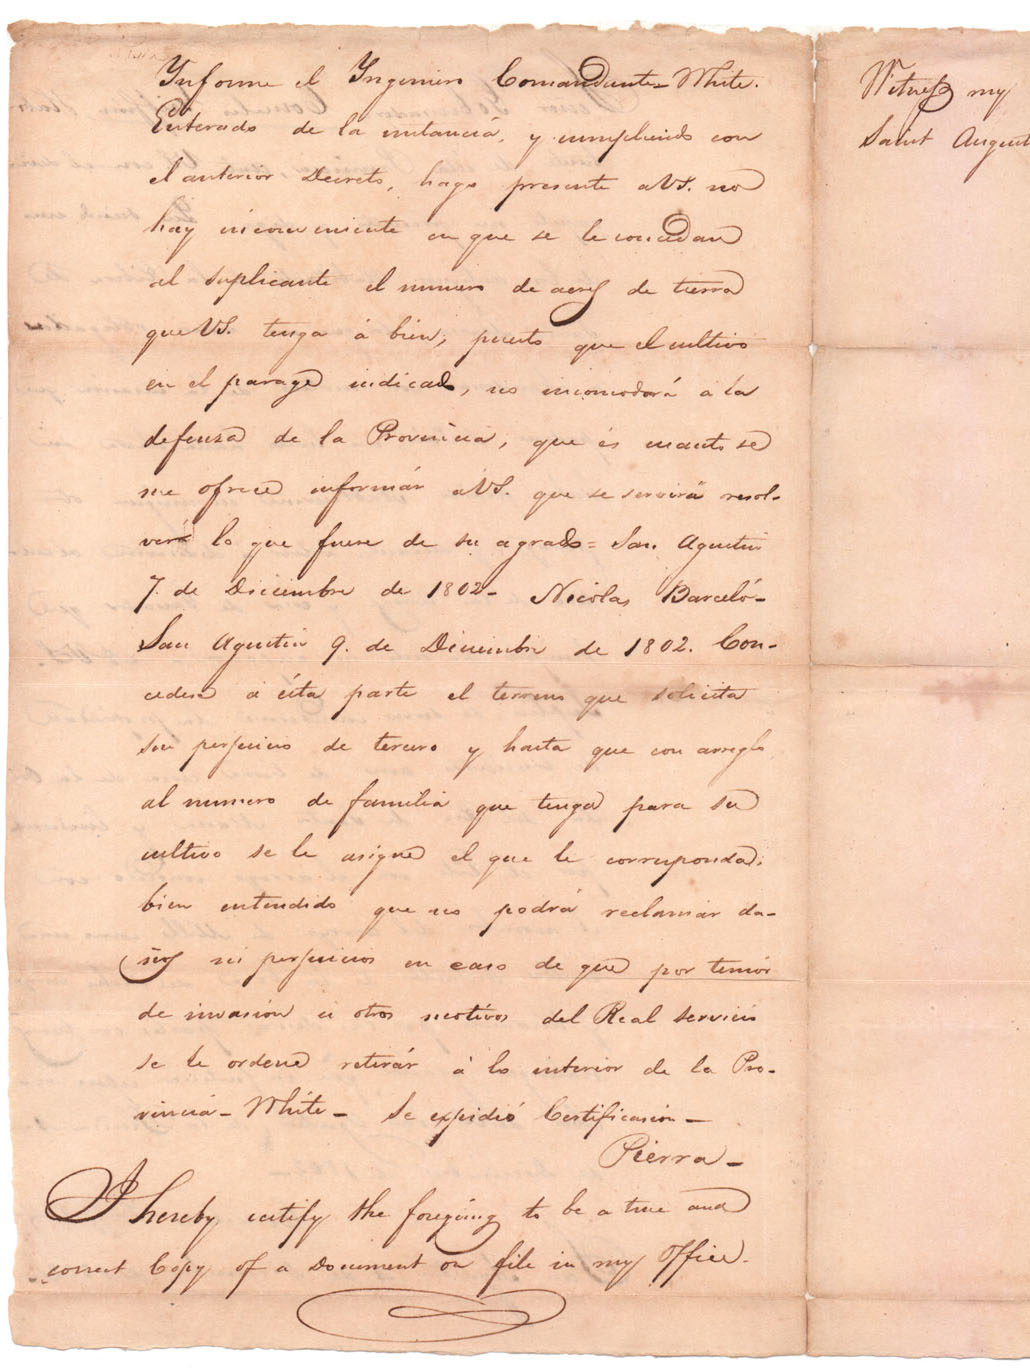 Informe el Ingeniero Comandante = White.
Enterado de la instancia, y cumpliendo con
el anterior Decreto, hago presente a VS. no
hay inconveniente en que se le concedan
al suplicante el numero de acres de tierra
que VS. tenga á bien; puesto que el cultivo
en el parage indicado, no incomodará a la
defensa de la Provincia, que és cuanto se
me ofrece informár a VS. que se servirá resol-
verá lo que fuere de su agrado = San Agustin
7. de Diciembre de 1802 - Nicolas Barceló -
San Agustin 9. de Diciembre de 1802. Con-
cedese a ésta parte el terreno que solicita
sin perjuicio de tercero y hasta que con arreglo
al numero de familia que tenga para su
cultivo se le asigne el que le corresponda;
bien entendido que no podrá reclamar da-
ños ni perjuicios en caso de que por temór
de invasion ú otros motivos del Real servicio
se le ordene retirár á lo interior de la Pro-
vincia - White - Se expidió Certificasion -
Pierra -
I hereby certify the foregoing to be a true and
correct Copy of a Document on file in my Office.
Witness my
Saint August